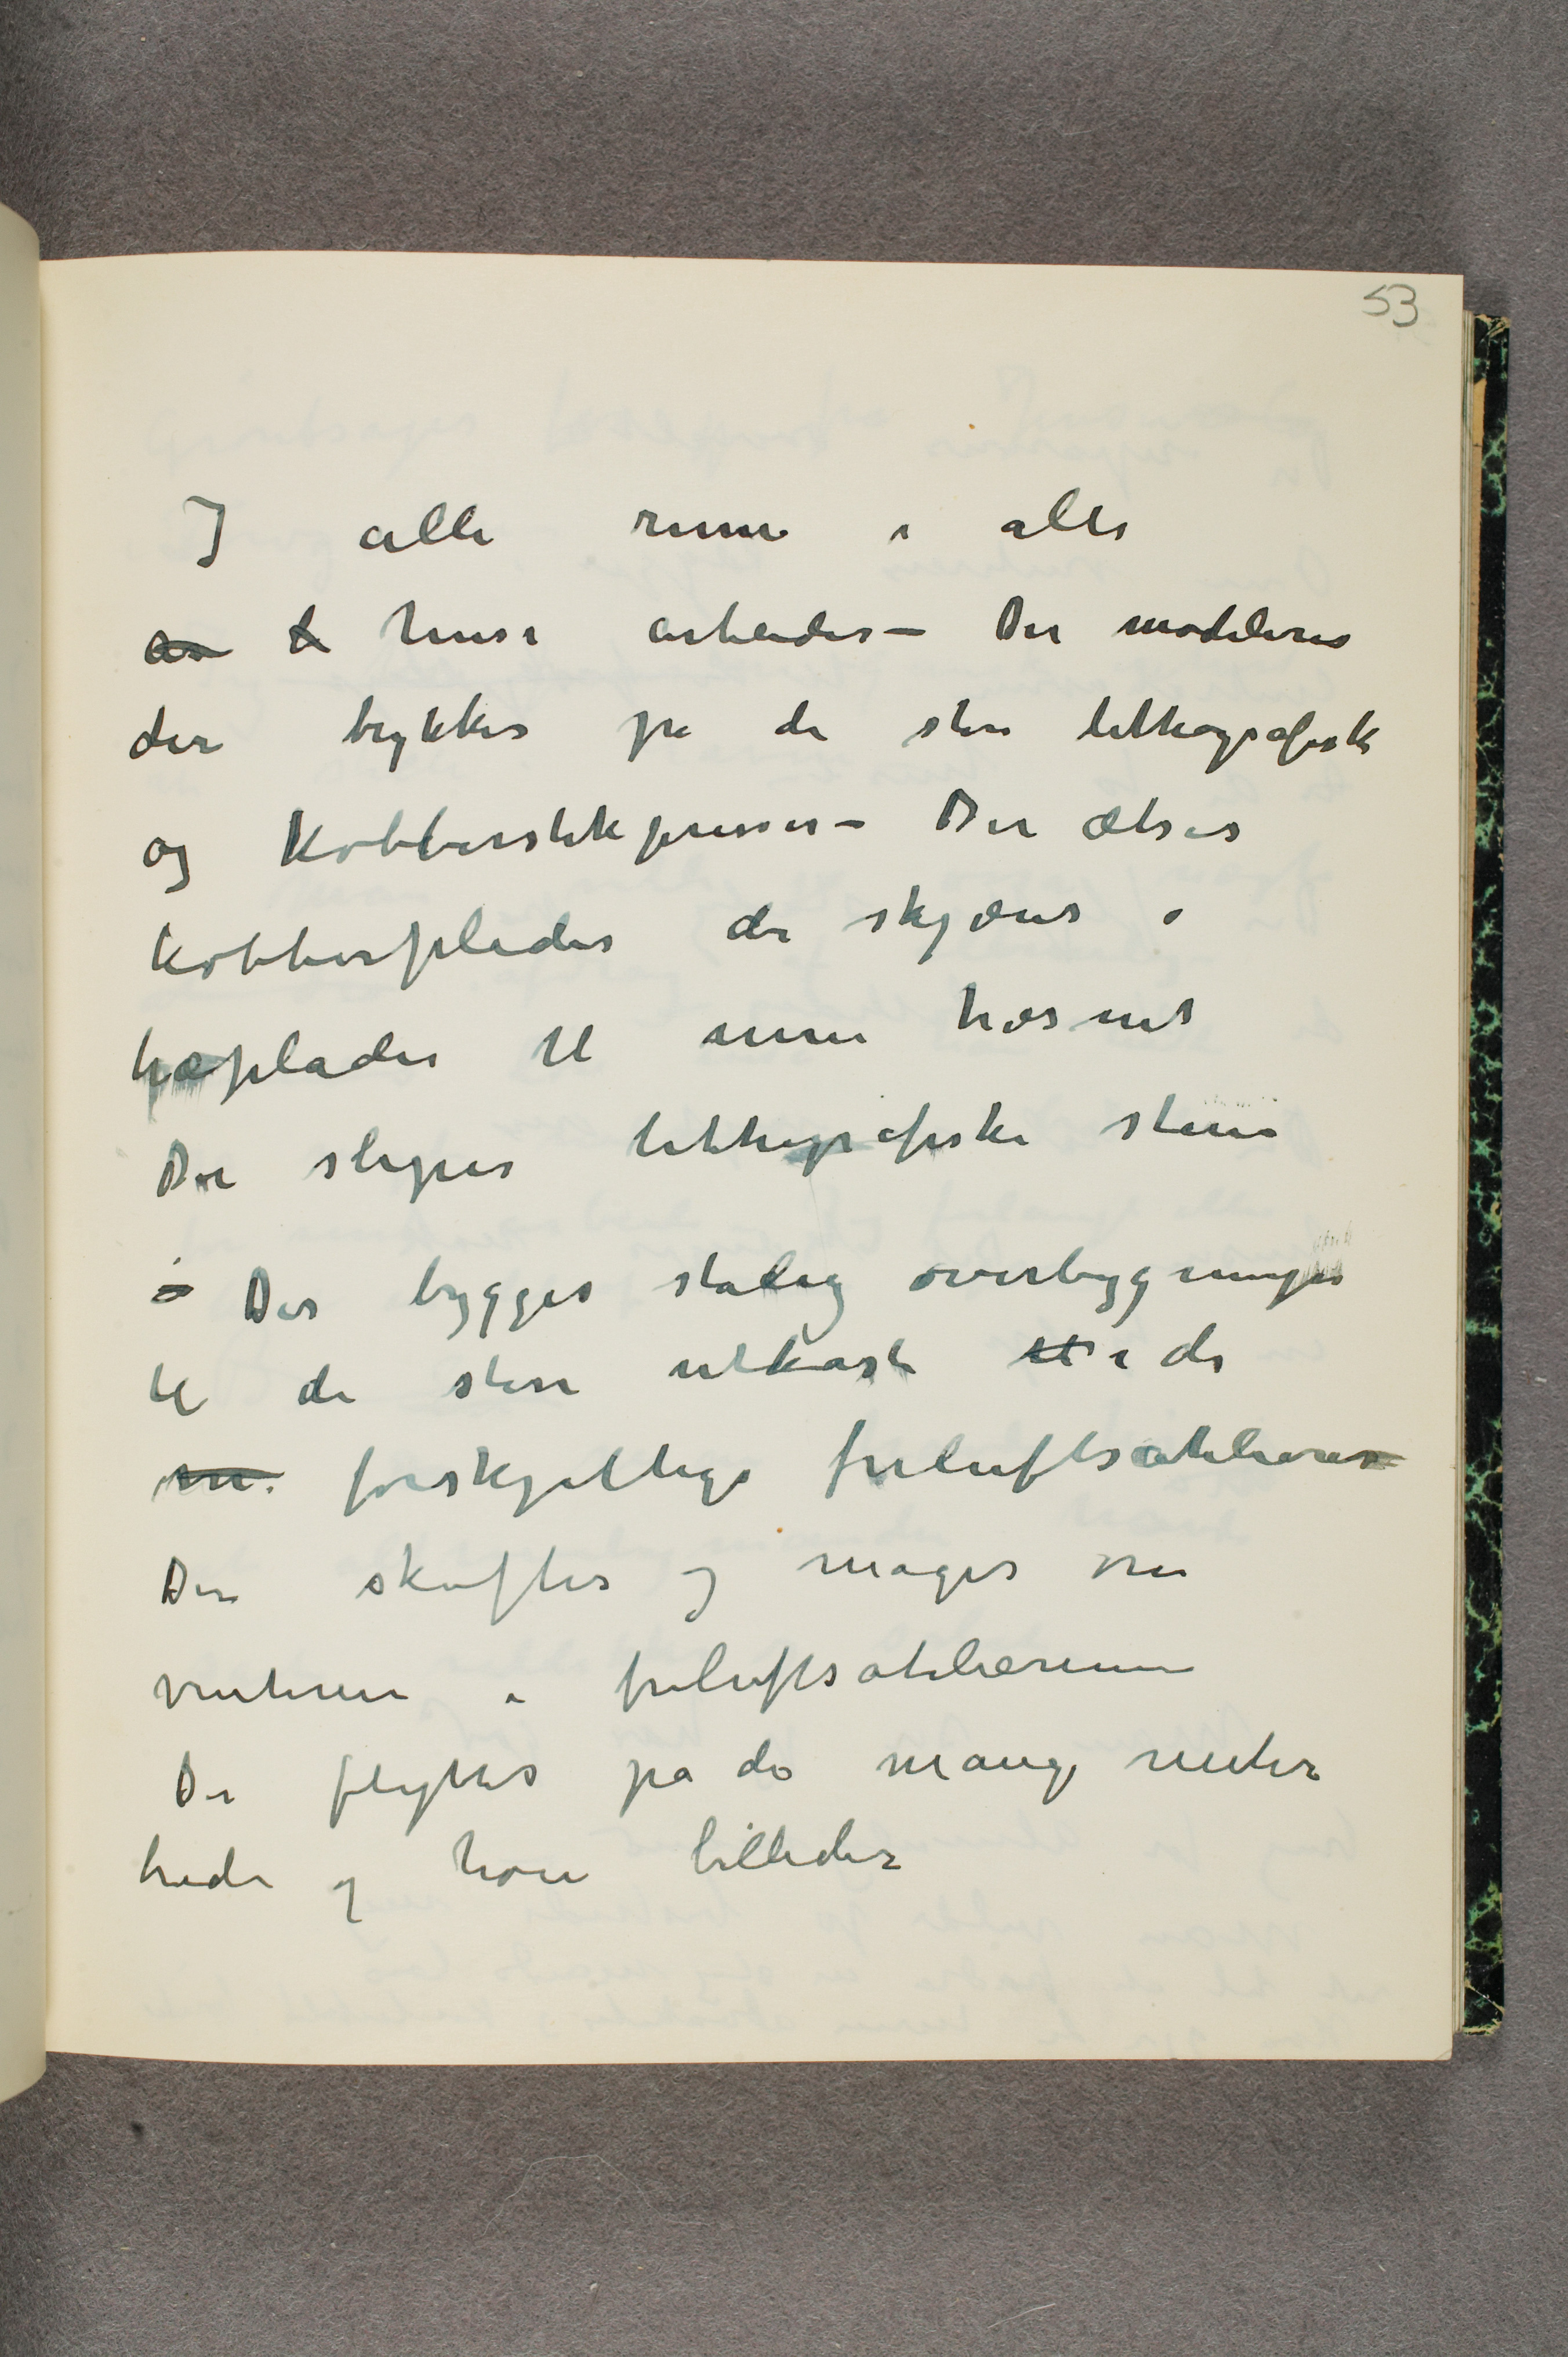 53
I alle rum i alle
huse arbeides – Der modeleres
der trykkes på de store lithografiske
og Kobberstikpresser – Der ætses
kobberplader der skjæres i
træplader til mine træsnit
Der slipes lithografiske stene
Der bygges stadig overbygninger
til de store utkast i de
forskjællige friluftsatelierer
Der skuftes og mages om
vinteren i friluftsatelierene
Der flyttes på de mange meter
brede og høie billeder